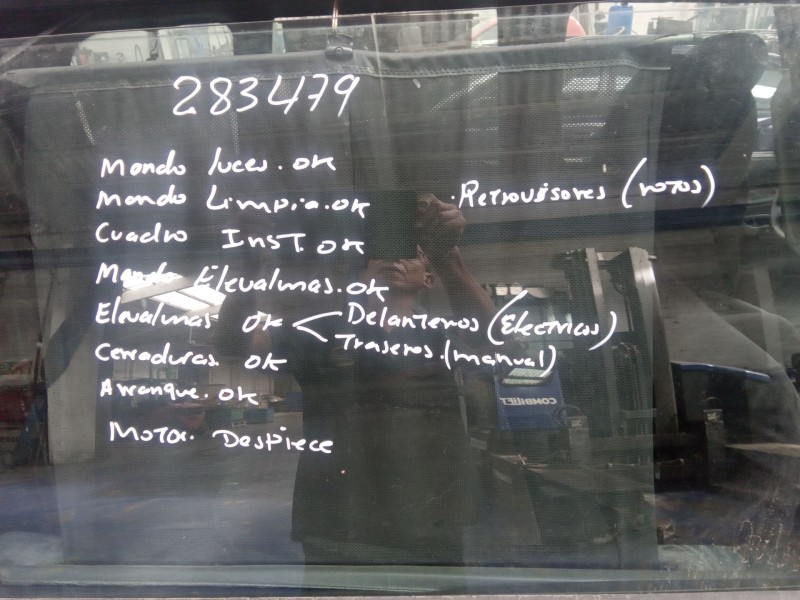 283479
Mando luces. OK
Mando Limpia. OK
. Retrovisores (rotos)
Cuadro Inst. OK
Mando Elevalunas. OK
Elevalunas OK < Delanteros (Electricos)
Traseros. (manual)
Cerraduras. OK
Arranque. OK
Motor. Despiece
COMBILIFT